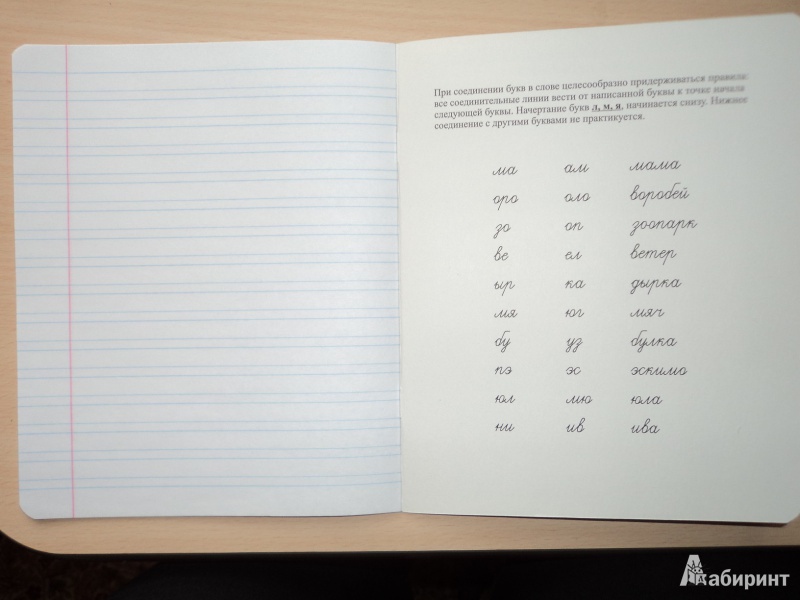 При соединении букв в слове целесообразно придерживаться правила:
все соединительные линии вести от написанной буквы к точке начала
следующей буквы. Начертание букв л, м, я, начинается снизу. Нижнее
соединение с другими буквами не практикуется.
ма ам мама
оро оло воробей
зо оп зоопарк
ве ел ветер
ыр ка дырка
мя юг мяч
бу уз булка
пэ эс эскимо
юл мю юла
ни ив ива
Лабиринт